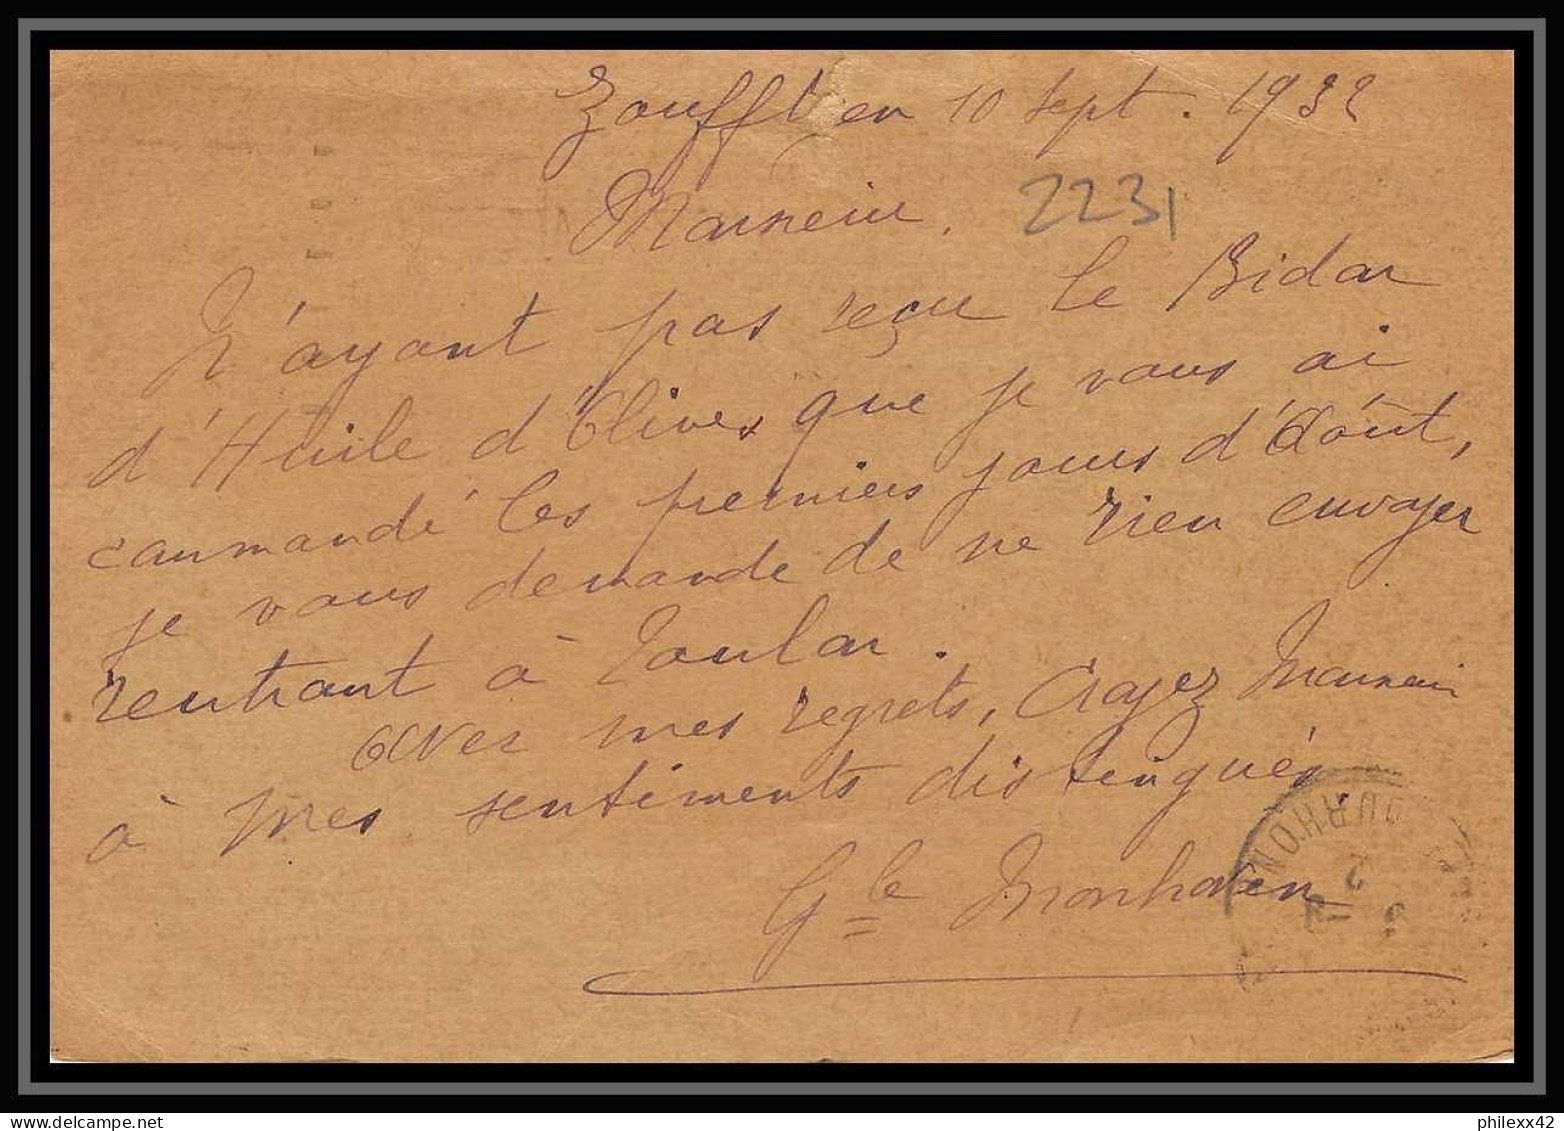 Zoufftgen 10 Sept. 1932
Monsieur,
2231
N'ayant pas reçu le Bidon
d'Huile d'Olives que je vous ai
commandé les premiers jours d'Août,
je vous demande de ne rien envoyer
rentrant à Toulon.
Avec mes regrets, Croyez Monsieur
à mes sentiments distingués
Gle Monhoven
philexx42